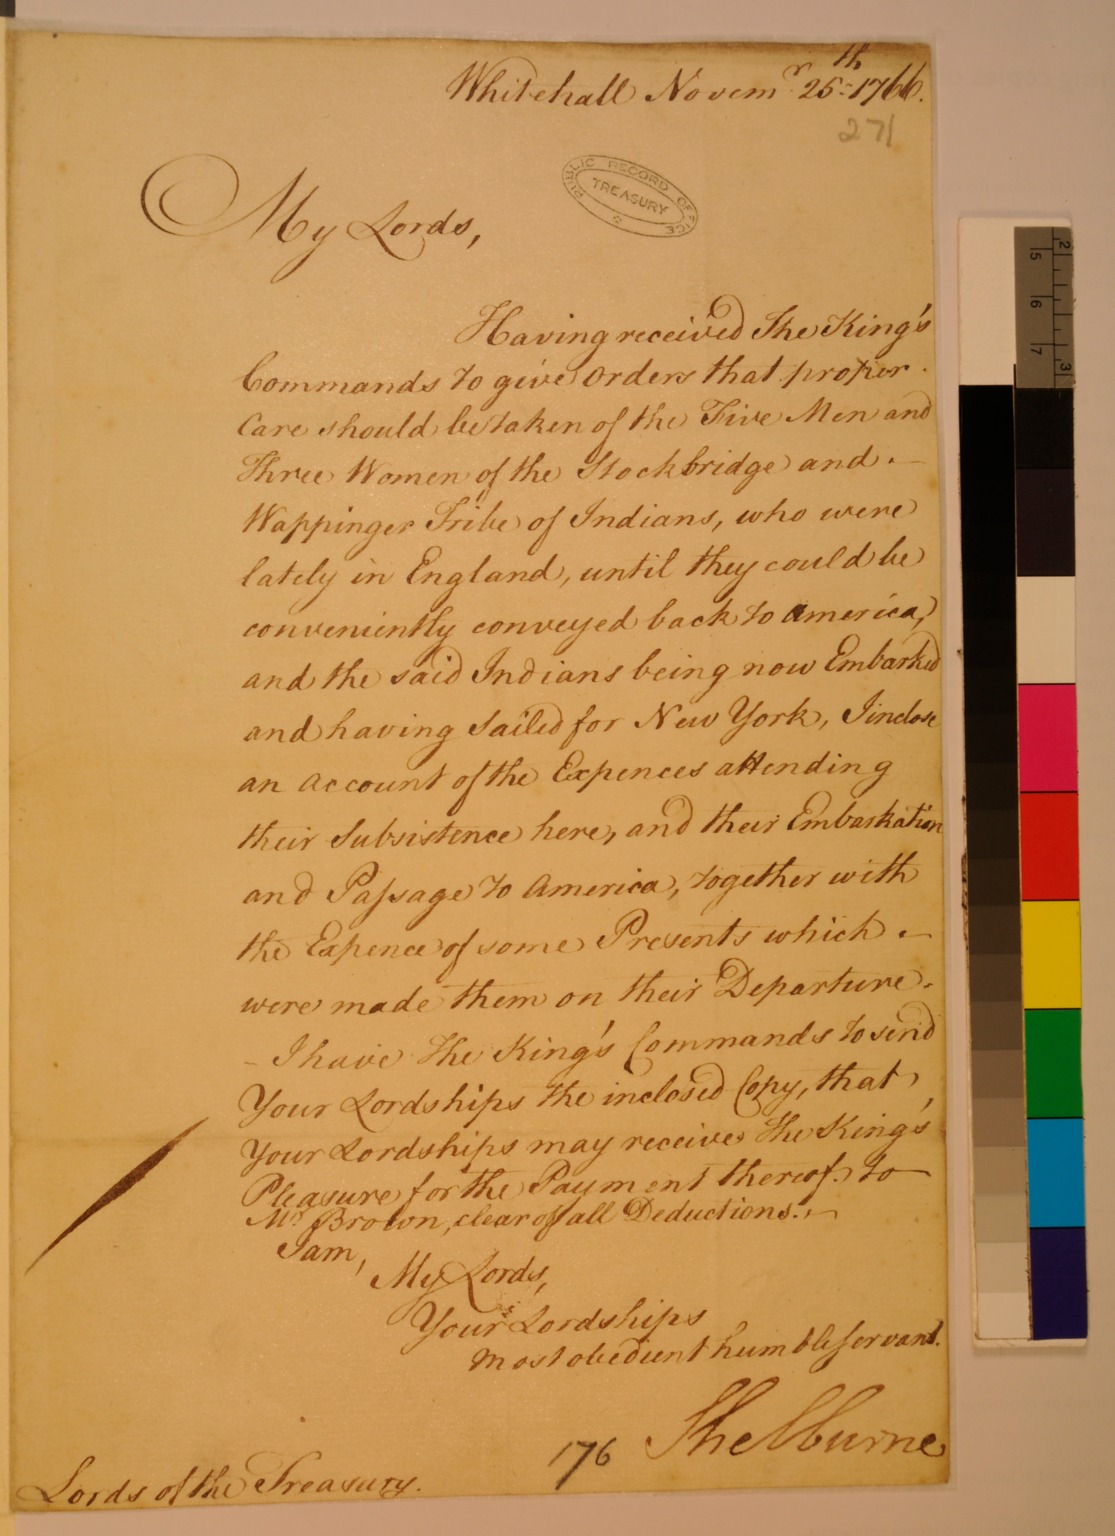 Whitehall Novemr. 25th 1766.
271
PUBLIC RECORD OFFICE
TREASURY
My Lords,
Having received The King's
Commands to give orders that proper
Care should be taken of the Five Men and
Three Women of the Stockbridge and
Wappinger Tribe of Indians, who were
lately in England, until they could be
conveniently conveyed back to America,
and the said Indians being now Embarked
and having Sailed for New York, I inclose
an account of the Expences attending
their Subsistence here, and their Embarkation
and Passage to America, together with
the Expence of some Presents which
were made them on their Departure.
- I have The King's Commands to send
Your Lordships the inclosed Copy, that
Your Lordships may receive The King's
Pleasure for the Payment thereof to
Mr. Brown, clear of all Deductions.
I am,
My Lords,
Your Lordships
most obedient humble servant.
Shelburne
176
Lords of the Treasury.
2
5
6
7
3